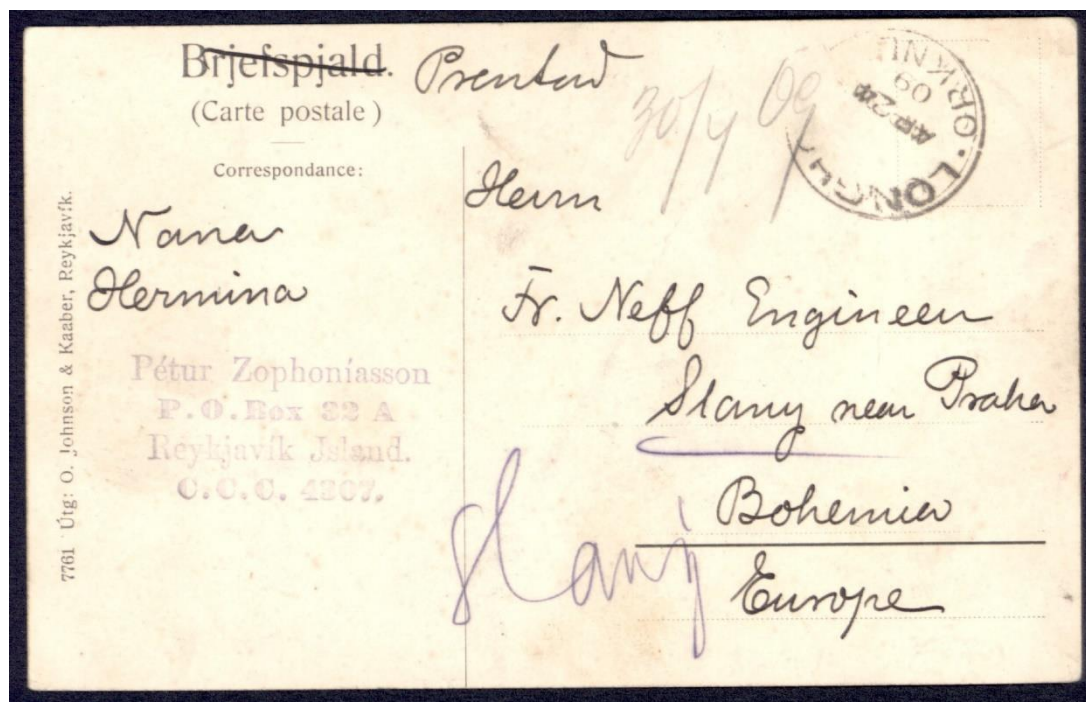 Brjefspjald. Prentað
(Carte postale)
Correspondance:
30/4 09
ORKNEY
AP 24
09
LONGHO
Nana
Hermina
Pétur Zophoníasson
P.O.Box 32 A
Reykjavík Jsland.
C.C.C. 4307.
7761 Útg: O. Johnson & Kaaber, Reykjavík.
Herrn
Fr. Neff Engineer
Slany near Praha
Bohemia
Europe
Slaný